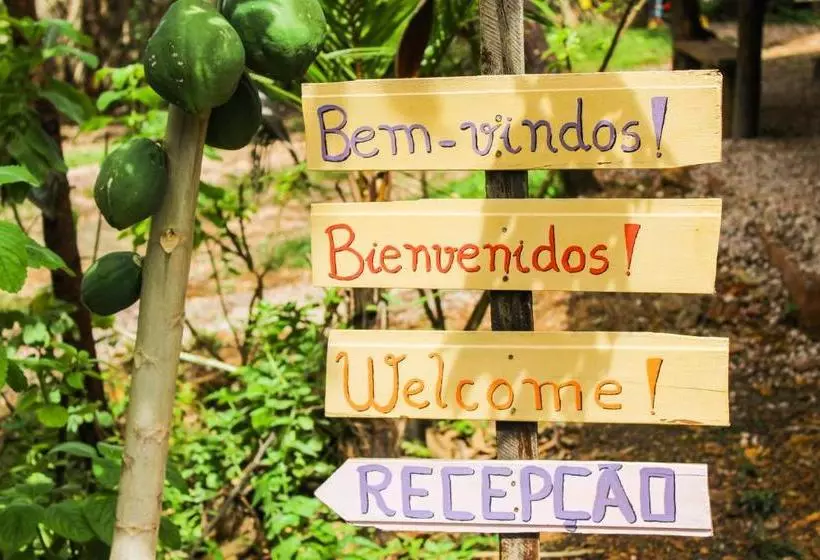 Bem-vindos!
Bienvenidos!
Welcome!
RECEPÇÃO